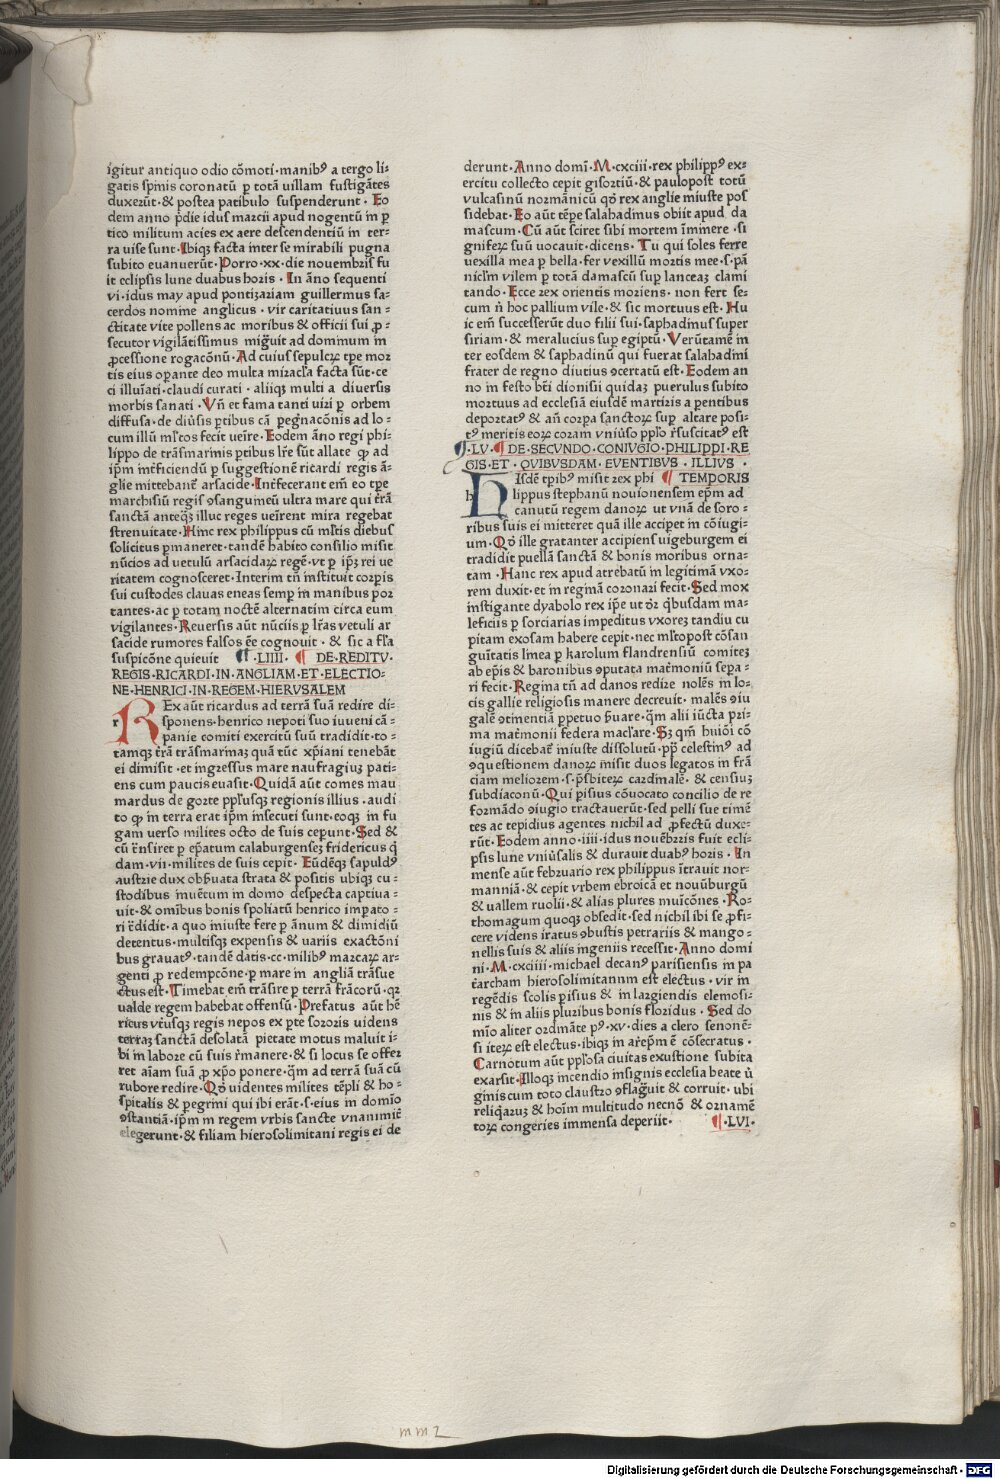 igitur antiquo odio cōmoti·manibꝰ a tergo li⸗
gatis spinis coronatū ꝑ totā uillam fustigātes
duxerūt·& postea patibulo suspenderunt · Eo
dem anno ṗdie idus marcii apud nogentū in ꝑ
tico militum acies ex aere descendentiū in ter⸗
ra uise sunt·Ibiqꝫ facta inter se mirabili pugna
subito euanuerūt·Porro·xx·die nouembris fu
it eclipsis lune duabus horis · In āno sequenti
vi·idus may apud pontizariam guillermus sa⸗
cerdos nomine anglicus · vir caritatiuus san⸗
ctitate vite pollens ac moribus & officii sui ꝓ⸗
secutor vigilātissimus mig̃uit ad dominum in
ꝓcessione rogacōnū·Ad cuius sepulcrꝫ tꝑe mor
tis eius oꝑante deo multa miracl̓a facta sūt·ce
ci illuīati·claudi curati · aliiqꝫ multi a diuersis
morbis sanati · Vn̄ et fama tanti uiri ꝑ orbem
diffusa·de diūsis ꝑtibus cā peg̓nacōnis ad lo⸗
cum illū ml̓tos fecit ueīre·Eodem āno regi phi⸗
lippo de trāsmarinis ꝑtibus lr̄e sūt allate ꝙ ad
ip̄m int̄ficiendū ꝑ suggestionē ricardi regis ā⸗
glie mittebanť arsacide·Int̄fecerant em̄ eo tꝑe
marchisiū regis ꝯsangumeū ultra mare qui t̄rā
sanctā anteqꝫ illuc reges ueīrent mira regebat
strenuitate·Hinc rex philippus cū ml̓tis diebus
solicitus ꝑmaneret·tandē habito consilio misit
nūcios ad uetulū arsacidaꝝ regē·vt ꝑ ip̄ꝫ rei ue
ritatem cognosceret·Interim tn̄ instituit corpis
sui custodes clauas eneas semꝑ in manibus por
tantes·ac ꝑ totam noctē alternatim circa eum
vigilantes·Reuersis aūt nūciis ꝑ lr̄as vetuli ar
sacide rumores falsos eē cognouit · & sic a fl̓a
suspicōne quieuit ¶ ·LIIII· ¶ DE·REDITV·
REGIS·RICARDI·IN·ANGLIAM·ET·ELECTIO⸗
NE·HENRICI·IN·REGEM·HIERVSALEM
REx aūt ricardus ad terrā suā redire di⸗
sponens·henrico nepoti suo iuueni cā⸗
panie comiti exercitū suū tradidit·to⸗
tamqꝫ t̄rā trāsmarinaꝫ quā tūc xp̄iani tenebāt
ei dimisit ·et ingressus mare naufragiuꝫ pati⸗
ens cum paucis euasit·Quidā aūt comes mau
mardus de gorte pp̄lusqꝫ regionis illius ·audi
to ꝙ in terra erat ip̄m insecuti sunt·eoqꝫ in fu
gam uerso milites octo de suis cepunt·Sed &
cū t̄nsiret ꝑ ep̄atum calaburgenseꝫ fridericus q̄
dam·vii·milites de suis cepit· Eūdēqꝫ sapuldꝰ
austrie dux obẜuata strata & positis ubiqꝫ cu⸗
stodibus inuētum in domo despecta captiua⸗
uit·& omībus bonis spoliatū henrico imꝑato⸗
ri t̄didit· a quo iniuste fere ꝑ ānum & dimidiū
detentus·multisqꝫ expensis & uariis exactōni
bus grauatꝰ·tandē datis·cc·milibꝰ marcaꝝ ar⸗
genti ꝓ redempcōne·ꝑ mare in angliā trāsue
ctus est·Timebat em̄ trāsire ꝑ terrā frācorū·qꝛ
ualde regem habebat offensū·Prefatus aūt hē
ricus vt̄usqꝫ regis nepos ex ꝑte sororis uidens
terraꝫ sanctā desolatā pietate motus maluit i⸗
bi in labore cū suis r̄manere·& si locus se offer
ret aīam suā ꝓ xp̄o ponere·q̄m ad terrā suā cū
rubore redire·Qd̄ uidentes milites tēpli & ho⸗
spitalis & ꝑegrini qui ibi erāt·s·eius in domīo
ꝯstantiā·ip̄m in regem vrbis sancte vnanimiť
elegerunt·& filiam hierosolimitani regis ei de
derunt·Anno domī·M·cxciii·rex philippꝰ ex⸗
ercitu collecto cepit gisortiū·& paulopost totū
vulcasinū normānicū qd̄ rex anglie iniuste pos
sidebat·Eo aūt tēꝑe salahadinus obiit apud da
mascum·Cū aūt sciret sibi mortem īminere ·si
gniferꝫ suū uocauit·dicens· Tu qui soles ferre
uexilla mea ꝑ bella·fer vexillū mortis mee·s·pā
nicl̓m vilem ꝑ totā damascū suꝑ lanceaꝫ clami
tando·Ecce rex orientis moriens· non fert se⸗
cum n̄ hoc pallium vile·& sic mortuus est· Hu
ic em̄ successerūt duo filii sui·saphadinus super
siriam·& meralucius suꝑ egiptū·Verūtamē in
ter eosdem & saphadinū qui fuerat salahadini
frater de regno diutius ꝯcertatū est·Eodem an
no in festo bt̄i dionisii quidaꝫ puerulus subito
mortuus ad ecclesiā eiusdē martizis a ꝑentibus
deportatꝰ & an̄ corpa sanctoꝝ suꝑ altare posi⸗
tꝰ meritis eoꝝ coram vniūso pp̄lo r̄suscitatꝰ est
¶·LV· ¶ DE·SECVNDO·CONIVGIO·PHILIPPI·RE
GIS·ET·QVIBVSDAM·EVENTIBVS·ILLIVS·
HIsdē tꝑibꝰ misit rex phi ¶ TEMPORIS
lippus stephanū nouionensem ep̄m ad
canutū regem danoꝝ ut vnā de soro⸗
ribus suis ei mitteret quā ille acciꝑet in cōiugi⸗
um·Qd̄ ille gratanter accipiens uigeburgem ei
tradidit puellā sanctā & bonis moribus orna⸗
tam ·Hanc rex apud atrebatū in legitimā vxo⸗
rem duxit·et in reginā coronari fecit·Sed mox
instigante dyabolo rex ip̄e ut dr̄ q̄busdam ma⸗
leficiis ꝑ sorciarias impeditus vxoreꝫ tandiu cu
pitam exosam habere cepit·nec ml̓topost cōsan
guītatis linea ꝑ karolum flandrensiū comiteꝫ
ab ep̄is & baronibus ꝯputata mat̄moniū sepa⸗
ri fecit·Regina tn̄ ad danos redire nolēs in lo⸗
cis gallie religiosis manere decreuit· malēs ꝯiu
galē ꝯtinentiā ꝑpetuo ẜuare·q̄m alii iūcta pri⸗
ma mat̄monii federa macl̓are·Sꝫ qm̄ huiꝰi cō
iugiū dicebať iniuste dissolutū·pp̄ celestinꝰ ad
ꝯquestionem danoꝝ misit duos legatos in frā
ciam meliorem·s·p̄sbiteꝝ cardinalē· & censiuꝫ
subdiaconū·Qui ꝑisius cōuocato concilio de re
formādo ꝯiugio tractauerūt·sed pelli sue timē
tes ac tepidius agentes nichil ad ꝓfectū duxe⸗
rūt·Eodem anno·iiii·idus nouēbris fuit ecli⸗
psis lune vniūsalis & durauit duabꝰ horis · In
mense aūt februario rex philippus ītrauit nor⸗
manniā·& cepit vrbem ebroicā et nouūburgū
& uallem ruolii·& alias plures muīcōnes · Ro⸗
thomagum quoqꝫ obsedit·sed nichil ibi se ꝓfi⸗
cere videns iratus ꝯbustis petrariis & mango⸗
nellis suis & aliis ingeniis recessit·Anno domi
ni·M·cxciiii·michael decanꝰ parisiensis in pa
t̄archam hierosolimitanum est electus · vir in
regēdis scolis ꝑisius & in largiendis elemosi⸗
nis & in aliis pluribus bonis floridus · Sed do
mīo aliter ordināte pꝰ·xv·dies a clero senonē⸗
si iteꝝ est electus·ibiqꝫ in ar̄ep̄m ē cōsecratus·
Carnotum aūt pp̄losa ciuitas exustione subita
exarsit·Illoqꝫ incendio insignis ecclesia beate ū
ginis cum toto claustro ꝯflag̃uit & corruit· ubi
reliq̄aruꝫ & hoīm multitudo necnō & ornamē
toꝝ congeries immensa deperiit· ¶·LVI·
mm2
Digitalisierung gefördert durch die Deutsche Forschungsgemeinschaft - DFG